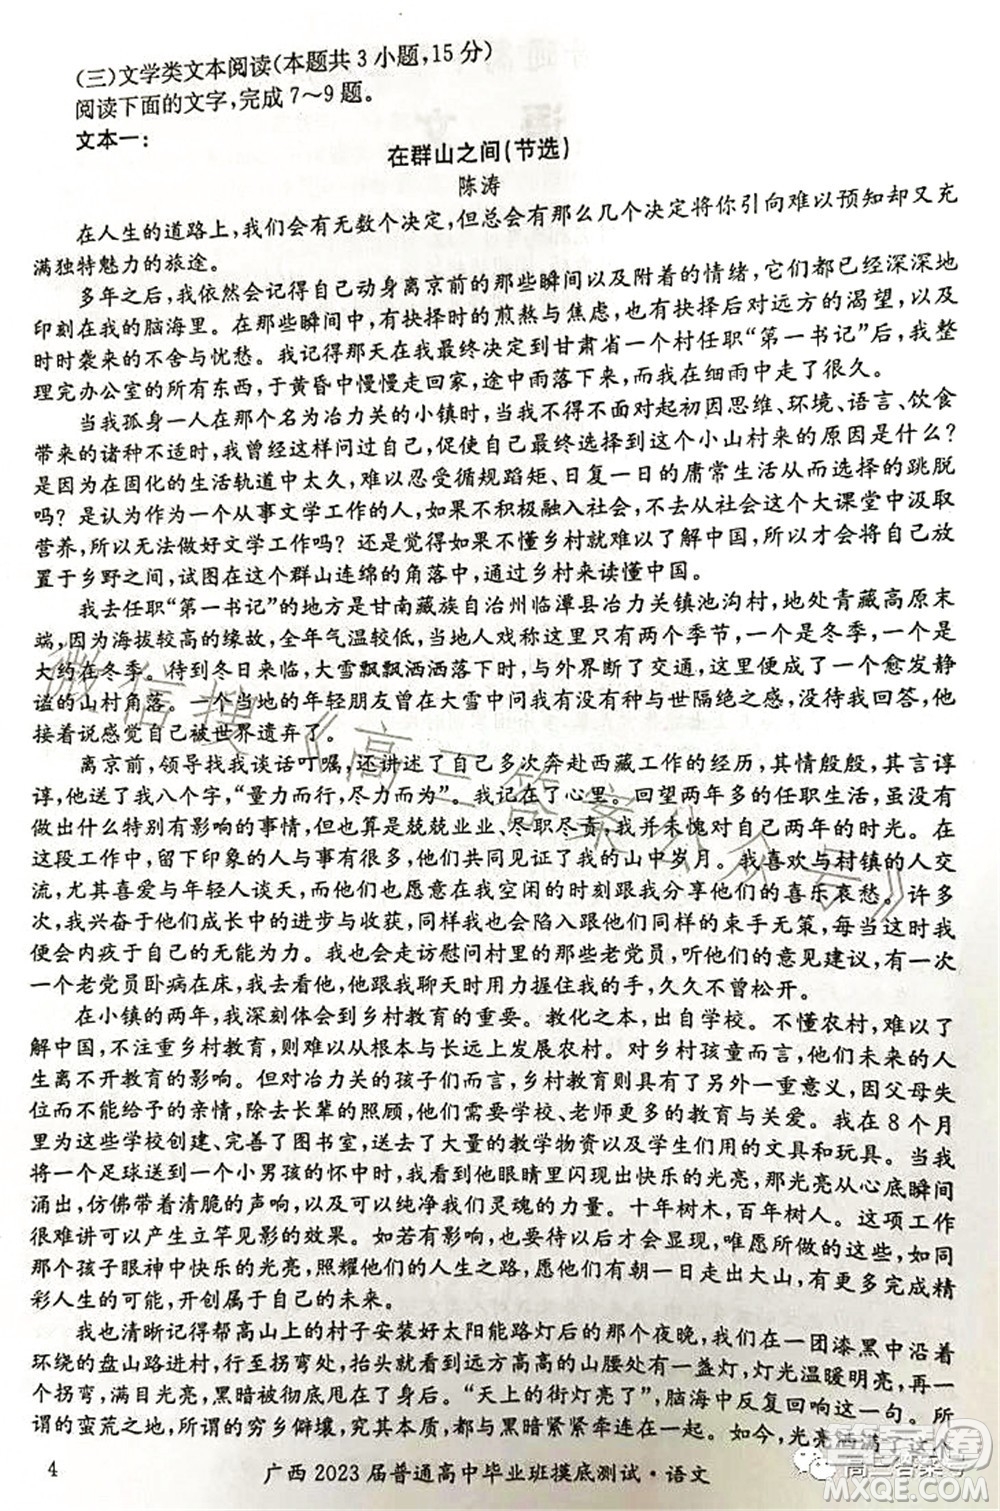 (三)文学类文本阅读(本题共3小题,15分)
阅读下面的文字,完成7～9题。
文本一:
在群山之间(节选)
陈涛
在人生的道路上,我们会有无数个决定,但总会有那么几个决定将你引向难以预知却又充
满独特魅力的旅途。
多年之后,我依然会记得自己动身离京前的那些瞬间以及附着的情绪,它们都已经深深地
印刻在我的脑海里。在那些瞬间中,有抉择时的煎熬与焦虑,有抉择后对远方的渴望,以及那
时时袭来的不舍与忧愁。我记得那天在即将去甘肃省一个村任职“第一书记”后,我整
理完办公室的所有东西,于黄昏中慢慢走回家,途中雨落不止,我在细雨中走了很久。
当我孤身一人在那个名为冶力关的小镇时,当我不得不面对起初因思维、环境、语言、饮食
带来的诸种不适时,我曾经这样问过自己,促使自己最终选择到这个小山村来的原因是什么?
是因为在固化的生活轨道中太久,难以忍受循规蹈矩、日复一日的庸常生活从而选择的跳脱
吗? 是认为作为一个从事文学工作的人,如果不积极融入社会,不去从社会这个大课堂中汲取
营养,所以无法做好文学工作吗? 还是觉得如果不懂乡村就难以了解中国,所以会将自己放
置于乡野之间,试图在这个群山连绵的角落中,通过乡村来读懂中国。
我去任职“第一书记”的地方是甘南藏族自治州临潭县冶力关镇池沟村,地处青藏高原末
端,因为海拔较高的缘故,全年气温较低,当地人戏称这里只有两个季节,一个是冬季,一个是
大约在冬季。待到冬日来临,大雪飘飘洒洒落下时,与外界断了交通,这里便成了一个愈发静
谧的山村角落。一个当地的年轻朋友曾在大雪中问我有没有种与世隔绝之感,没待我回答,他
接着说感觉自己被世界遗弃了。
离京前,领导找我谈话叮嘱,还讲述了自己多次奔赴西藏工作的经历,其情殷殷,其言谆
谆,他送了我八个字,“量力而行,尽力而为”。我记在了心里。回望两年多的任职生活,虽没有
做出什么特别有影响的事情,但也算是兢兢业业、尽职尽责,我并未愧对自己两年的时光。在
这段工作中,留下印象的人与事太多,他们共同见证了我的山中岁月。我喜欢与村镇的人交
流,尤其喜爱与年轻人谈天,而他们也愿意在我空闲的时刻跟我分享他们的喜乐哀愁。许多
次,我兴奋于他们成长中的进步与收获,同样也会陷入跟他们同样的束手无策,或爱莫能助,从
而会内疚于自己的无能为力。我也会走访慰问村里的那些老党员,听取他们的意见建议,有一次
一个老党员卧病在床,我去看他,他跟我聊天时用力握住我的手,久久不曾松开。
在小镇的两年,我深刻体会到乡村教育的重要。教化之本,出自学校。不懂农村,难以了
解中国,不抓乡村教育,则难以从根本与长远上发展农村。对乡村孩童而言,他们未来的人
生离不开教育的影响。但对冶力关的孩子们而言,乡村教育则具有另外一重意义,因父母失
位而不能给予的亲情,除去长辈的照顾,还需要学校、老师更多的教育与关爱。我在8个月
里为这些学校创建、完善了图书室,送去了大量的教学物资以及学生们用的文具和玩具。当我
将一个足球送到一个小男孩的怀中时,我看到他眼睛里闪现出快乐的光亮,那光亮从心底瞬间
涌出,仿佛带着清脆的声响,以及可以纯净我们灵魂的力量。十年树木,百年树人。这项工作
很难讲可以产生立竿见影的效果。但我相信终究会在未来的时光中才会显现,唯愿所做的这些,如同
那个孩子眼神中快乐的光亮,照耀他们的人生之路,愿他们有朝一日走出大山,有更多完成精
彩人生的可能,开创属于自己的未来。
我也清晰记得帮高山上的村子安装好太阳能路灯后的那个夜晚,我们在一团漆黑中沿着
环绕的盘山路进村,行至拐弯处,抬头突然看到远方高高的山腰处有一盏灯,灯光温暖明亮,再
个拐弯,满目光亮,黑暗被彻底甩在了身后。“天上的街灯亮了”,脑海中反复回响这一句。所
谓的蛮荒之地,所谓的穷乡僻壤,究其本质,都是与黑暗紧紧牵连在一起。如今,光亮洒满了这个
4
广西2023届普通高中毕业班摸底测试·语文
微信搜《高三答案公众号》
高三答案号